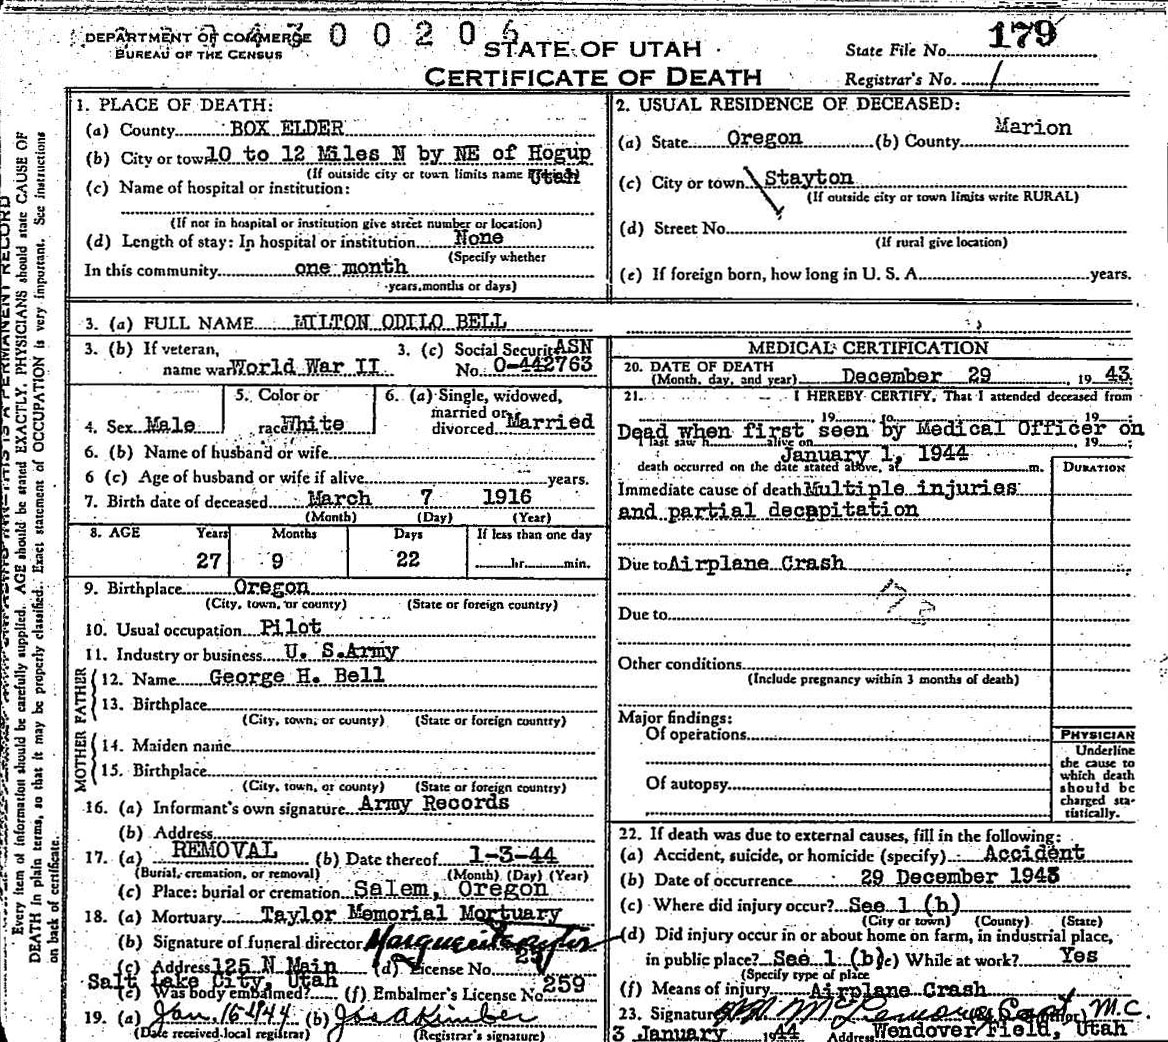 DEPARTMENT OF COMMERCE
BUREAU OF THE CENSUS
4300206
STATE OF UTAH
CERTIFICATE OF DEATH
State File No. 179
Registrar's No. 1
Every item of information should be carefully supplied. AGE should be stated EXACTLY. PHYSICIANS should state CAUSE OF
DEATH in plain terms, so that it may be properly classified. Exact statement of OCCUPATION is very important. See instructions
on back of certificate.
1. PLACE OF DEATH:
(a) County BOX ELDER
(b) City or town 10 to 12 Miles N by NE of Hogup
(If outside city or town limits name Utah
(c) Name of hospital or institution:
(If not in hospital or institution give street number or location)
(d) Length of stay: In hospital or institution None
(Specify whether
In this community one month
years, months or days)
2. USUAL RESIDENCE OF DECEASED:
(a) State Oregon (b) County Marion
(c) City or town Stayton
(If outside city or town limits write RURAL)
(d) Street No.
(If rural give location)
(e) If foreign born, how long in U. S. A. years.
3. (a) FULL NAME MILTON ODILO BELL
3. (b) If veteran, name war World War II
3. (c) Social Security ASN
No. 0-442763
4. Sex Male
5. Color or race White
6. (a) Single, widowed, married or divorced Married
6. (b) Name of husband or wife
6 (c) Age of husband or wife if alive years.
7. Birth date of deceased March 7 1916
(Month) (Day) (Year)
8. AGE Years Months Days If less than one day
27 9 22 hr. min.
9. Birthplace Oregon
(City, town, or county) (State or foreign country)
10. Usual occupation Pilot
11. Industry or business U. S. Army
FATHER
12. Name George H. Bell
13. Birthplace
(City, town, or county) (State or foreign country)
MOTHER
14. Maiden name
15. Birthplace
(City, town, or county) (State or foreign country)
16. (a) Informant's own signature Army Records
(b) Address
17. (a) REMOVAL (b) Date thereof 1-3-44
(Burial, cremation, or removal) (Month) (Day) (Year)
(c) Place: burial or cremation Salem, Oregon
18. (a) Mortuary Taylor Memorial Mortuary
(b) Signature of funeral director Marguerite Taylor
(c) Address 125 N Main (d) License No.
Salt Lake City, Utah
(e) Was body embalmed? (f) Embalmer's License No. 259
19. (a) Jan. 16-1944 (b) Jos A Kimber
(Date received local registrar) (Registrar's signature)
MEDICAL CERTIFICATION
20. DATE OF DEATH
(Month, day, and year) December 29, 1943
21. I HEREBY CERTIFY, That I attended deceased from
19 to 19
Dead when first seen by Medical Officer on
last saw h alive on 19
January 1, 1944
death occurred on the date stated above, at m.
DURATION
Immediate cause of death Multiple injuries
and partial decapitation
Due to Airplane Crash
Due to
Other conditions
(Include pregnancy within 3 months of death)
Major findings:
Of operations
Of autopsy
PHYSICIAN
Underline
the cause to
which death
should be
charged sta-
tistically.
22. If death was due to external causes, fill in the following:
(a) Accident, suicide, or homicide (specify) Accident
(b) Date of occurrence 29 December 1943
(c) Where did injury occur? See 1 (b)
(City or town) (County) (State)
(d) Did injury occur in or about home on farm, in industrial place,
in public place? See 1 (b) (e) While at work? Yes
(Specify type of place
(f) Means of injury Airplane Crash
23. Signature Capt M.C.
3 January 1944 Address Wendover Field, Utah